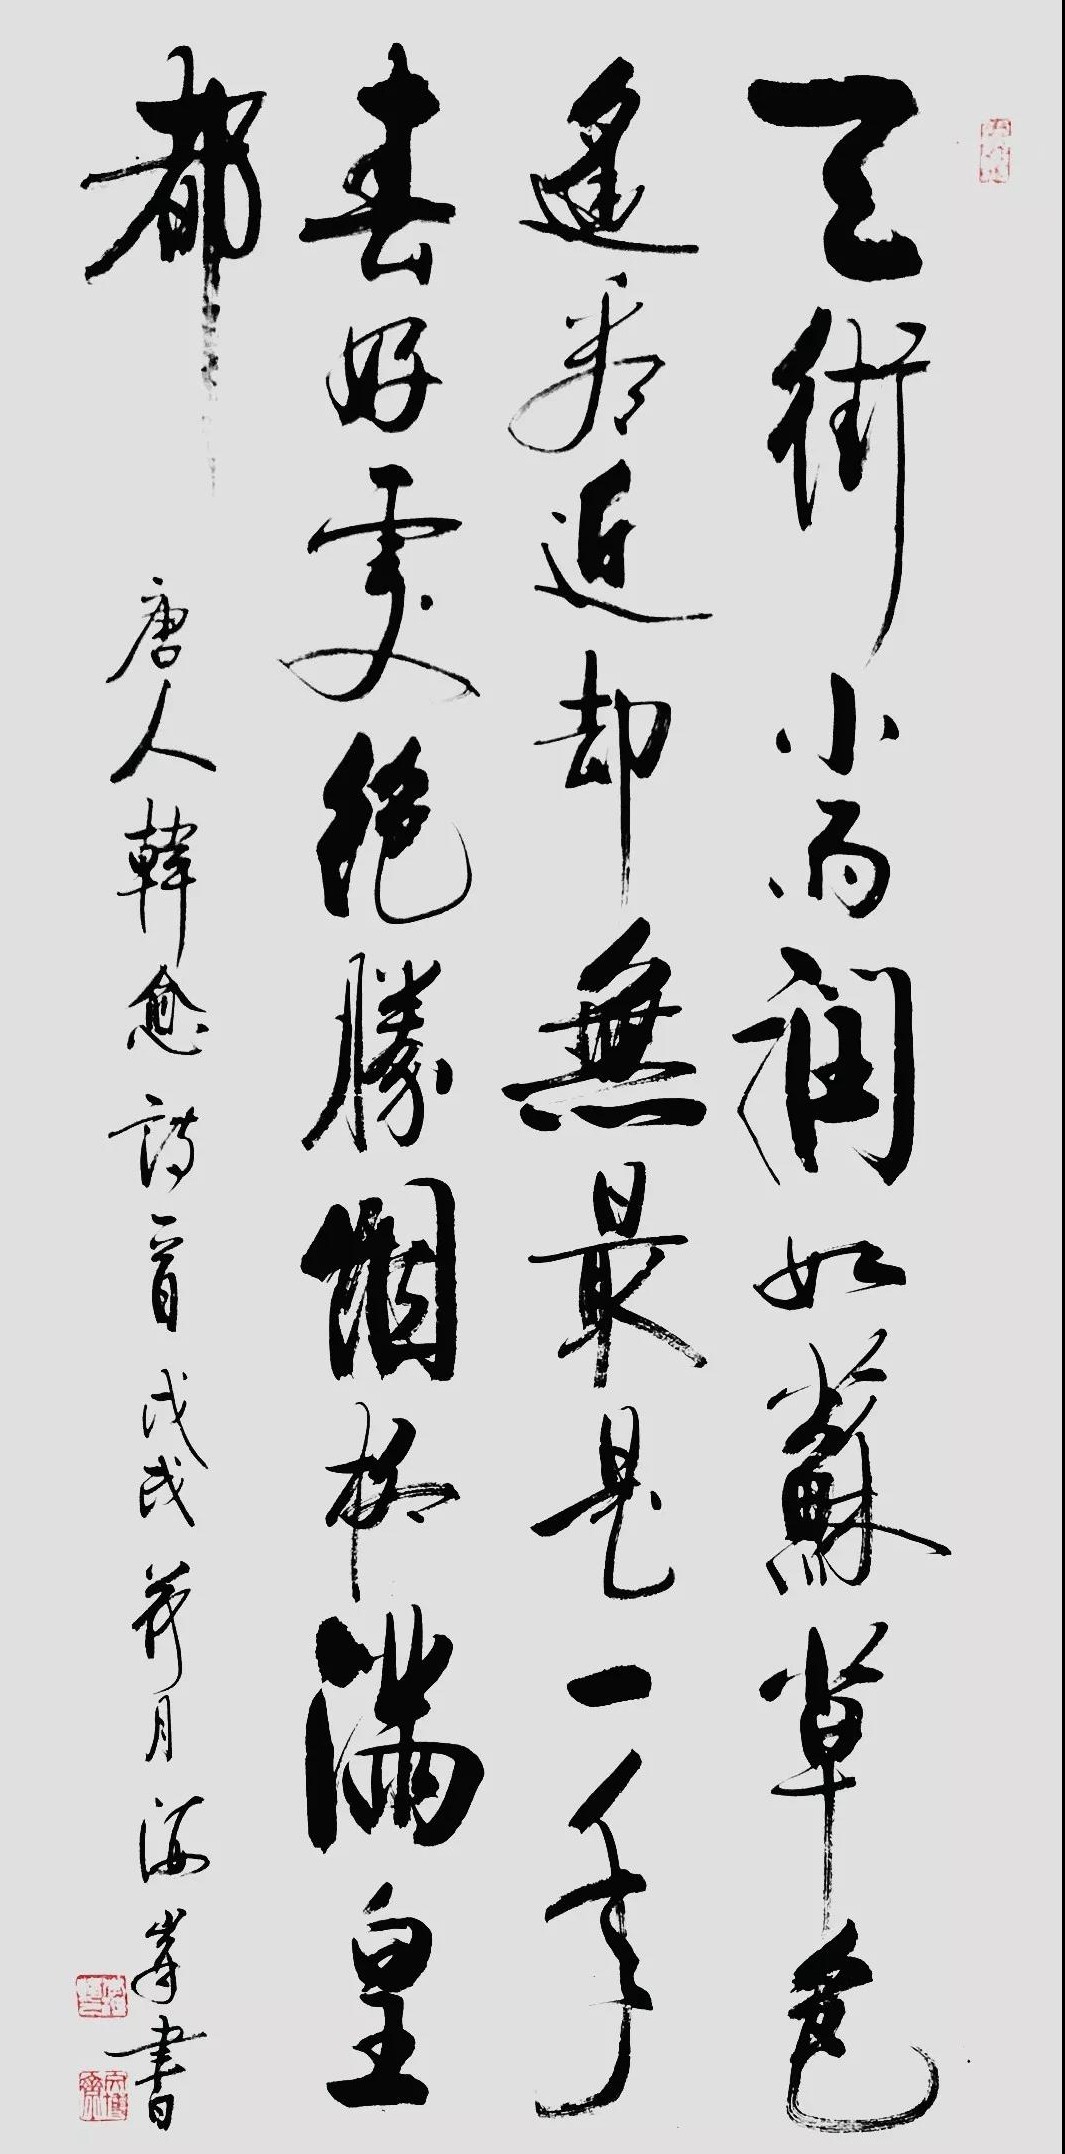 天街小雨润如蘇草色
遥看近却無最是一年
春好處絕勝烟柳滿皇
都
唐人韓愈詩一首戊戌荷月海峯書